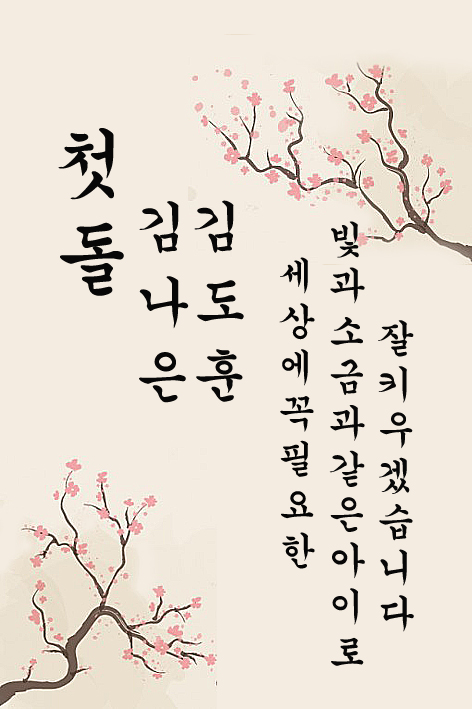 첫돌
김나은
김도훈
세상에꼭필요한
빛과소금과같은아이로
잘키우겠습니다